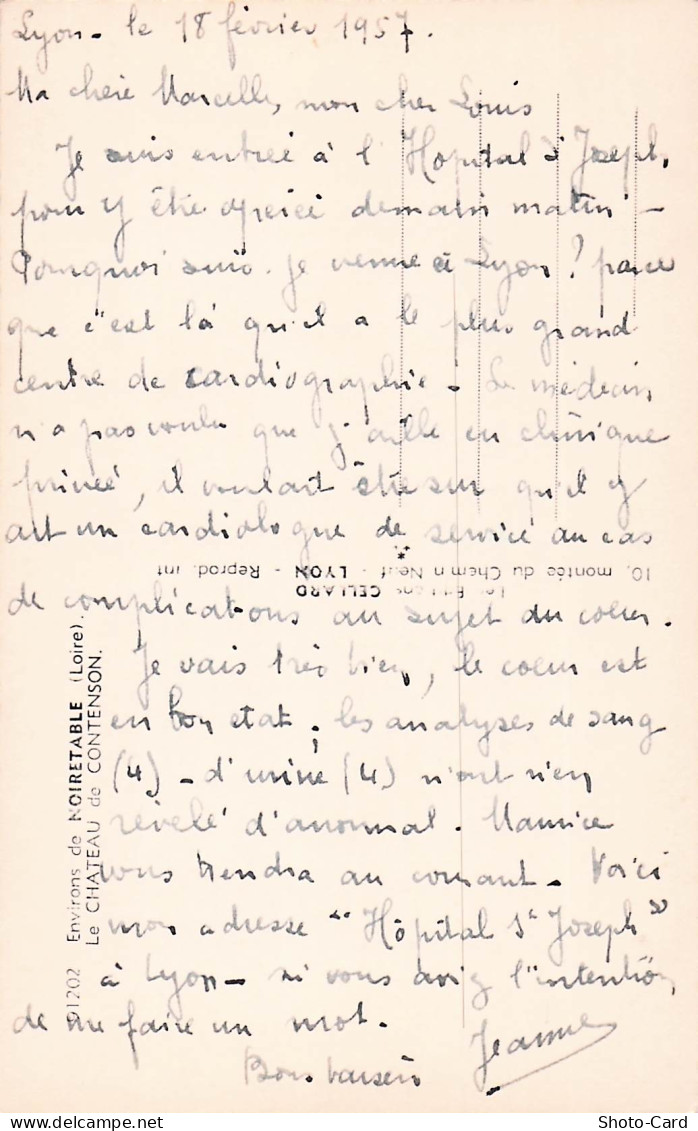 Lyon - le 18 février 1957.
Ma chère Marcelle, mon cher Louis
Je suis entrée à l'Hopital St Joseph,
pour y être opérée demain matin -
Pourquoi suis-je venue à Lyon ? parce
que c'est là qu'il a le plus grand
centre de cardiographie - Le médecin
n'a pas voulu que j'aille en clinique
privée, il voulait être sur qu'il y
ait un cardiologue de service au cas
de complications au sujet du coeur.
Je vais très bien, le coeur est
en bon etat ; les analyses de sang
(4) - d'urine (4) n'ont rien
révélé d'anormal. Maurice
vous tiendra au courant - Voici
mon adresse "Hôpital St Joseph"
à Lyon - si vous aviez l'intention
de me faire un mot.
Bons baisers
Jeanne
Les Editions CELLARD
10, montée du Chemin Neuf - LYON - Reprod. int
D1202 Environs de NOIRETABLE (Loire).
Le CHATEAU de CONTENSON.
Shoto-Card